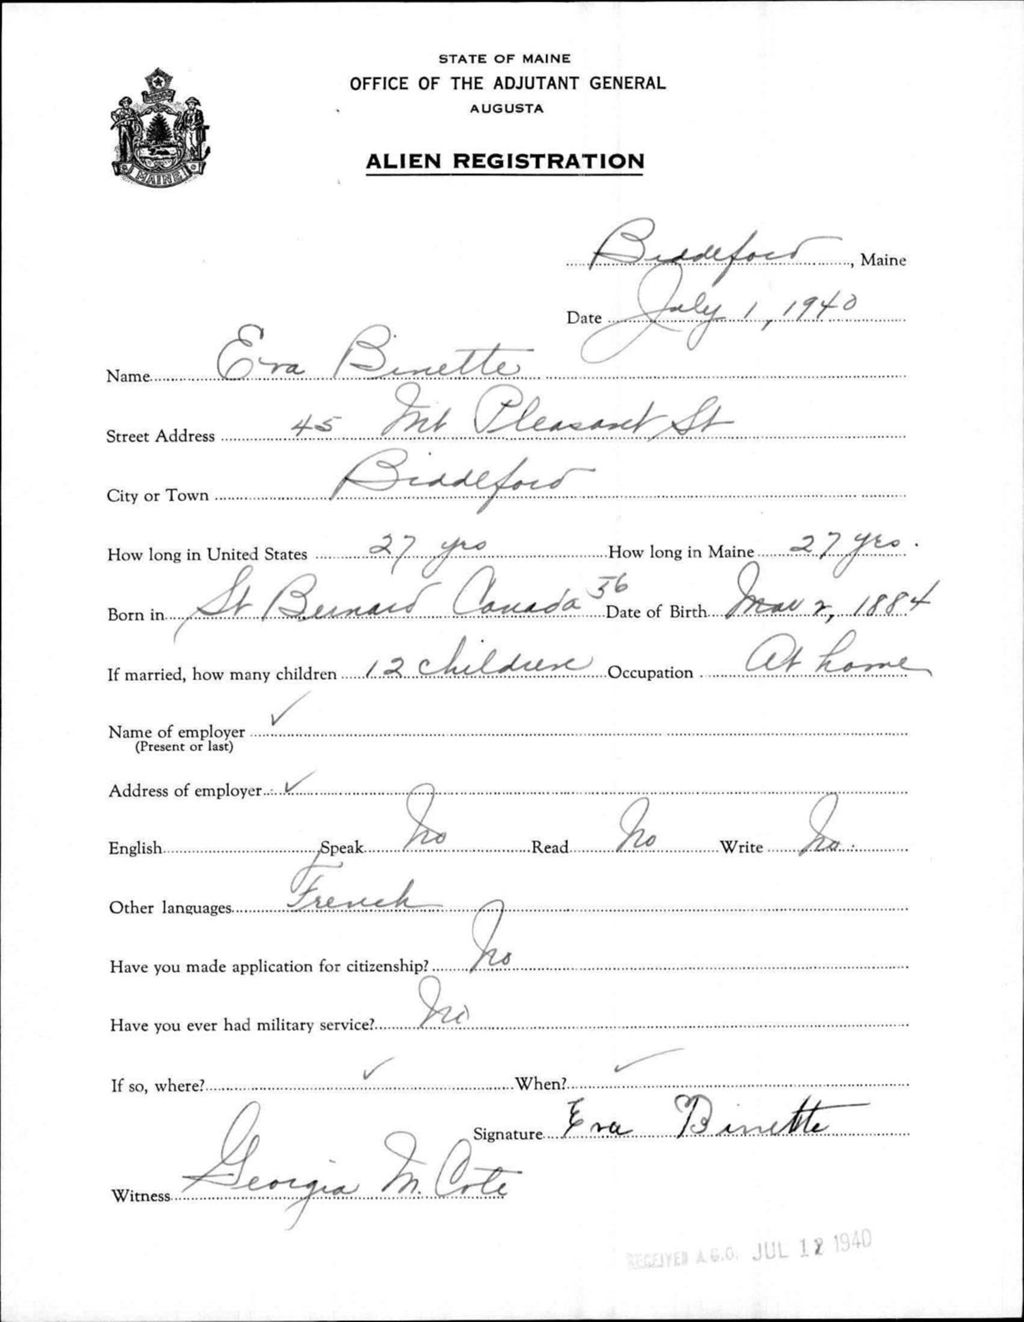 STATE OF MAINE
OFFICE OF THE ADJUTANT GENERAL
AUGUSTA
ALIEN REGISTRATION
MAINE
Biddeford, Maine
Date July 1, 1940
Name Eva Binette
Street Address 45 Mt Pleasant St
City or Town Biddeford
How long in United States 27 yrs How long in Maine 27 yrs.
Born in St Bernard Canada 56 Date of Birth Mar 2, 1884
If married, how many children 12 children Occupation At home
Name of employer ✓
(Present or last)
Address of employer ✓
English Speak No Read No Write No
Other languages French
Have you made application for citizenship? No
Have you ever had military service? No
If so, where? ✓ When? ✓
Signature Eva Binette
Witness Georgia M. Cote
RECEIVED A.G.O. JUL 12 1940